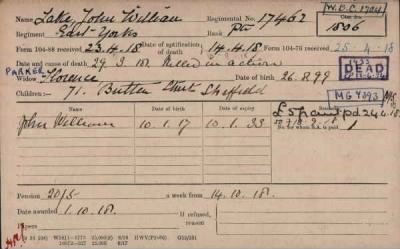 Name Lake, John William Regimental No. 17462 W.D.C. 1704
Regiment East Yorks Rank Pte Case No. 1806
Form 104-88 received 23.4.18 Date of notification of death 14.4.18 Form 104-76 received 25-4-18
Date and cause of death 29.3.18. Killed in action DEAD
PARKER
Widow Florence Date of birth 26.8.99
Children:— 71. Button Sheffield MG 4393
Date of birth Date of expiry
John William 10.1.17 10.1.33
No. for whom S.A. is paid 1
Pension 20/5 a week from 14.10.18.
Date awarded 1.10.18. If refused, reason
Papers